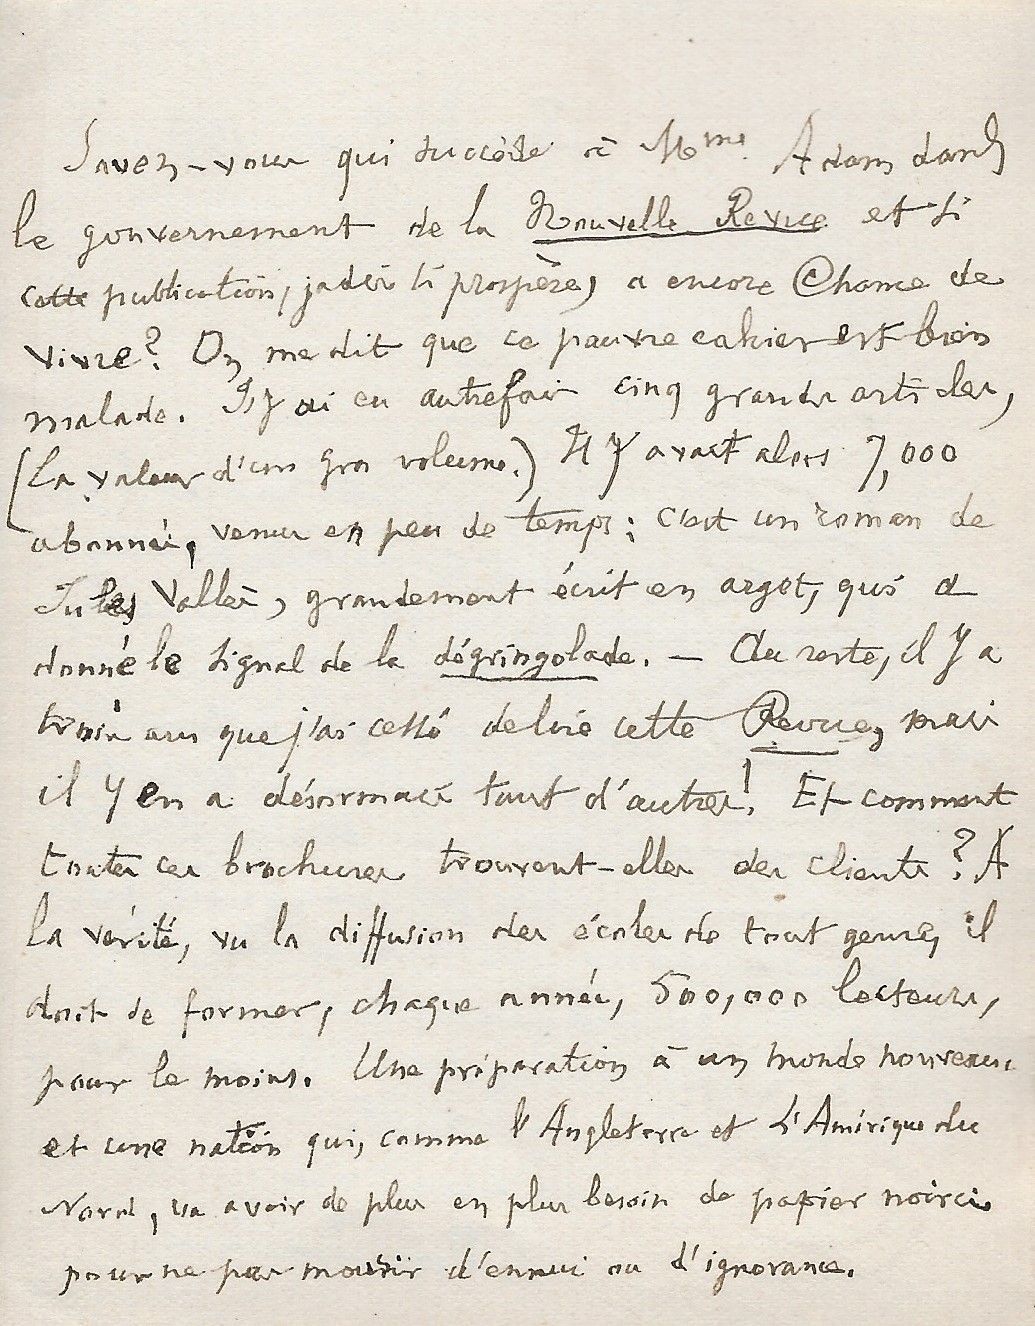 Savez-vous qui succède à Mme. Adam dans
le gouvernement de la Nouvelle Revue et si
cette publication, jadis si prospère, a encore Chance de
vivre? On me dit que ce pauvre cahier est bien
malade. J'y ai eu autrefois cinq grands articles,
(la valeur d'un gros volume.) Il y avait alors 7,000
abonnés, venus en peu de temps; c'est un roman de
Jules Vallès, grandement écrit en argot, qui a
donné le signal de la dégringolade. — Au reste, il y a
trois ans que j'ai cessé de lire cette Revue, mais
il y en a désormais tant d'autres! Et comment
toutes ces brochures trouvent-elles des clients? A
la vérité, vu la diffusion des écoles de tout genre, il
doit se former, chaque année, 500,000 lecteurs,
pour le moins. Une préparation à un monde nouveau
et une nation qui, comme l'Angleterre et L'Amérique du
Nord, va avoir de plus en plus besoin de papier noirci
pour ne pas mourir d'ennui ou d'ignorance.